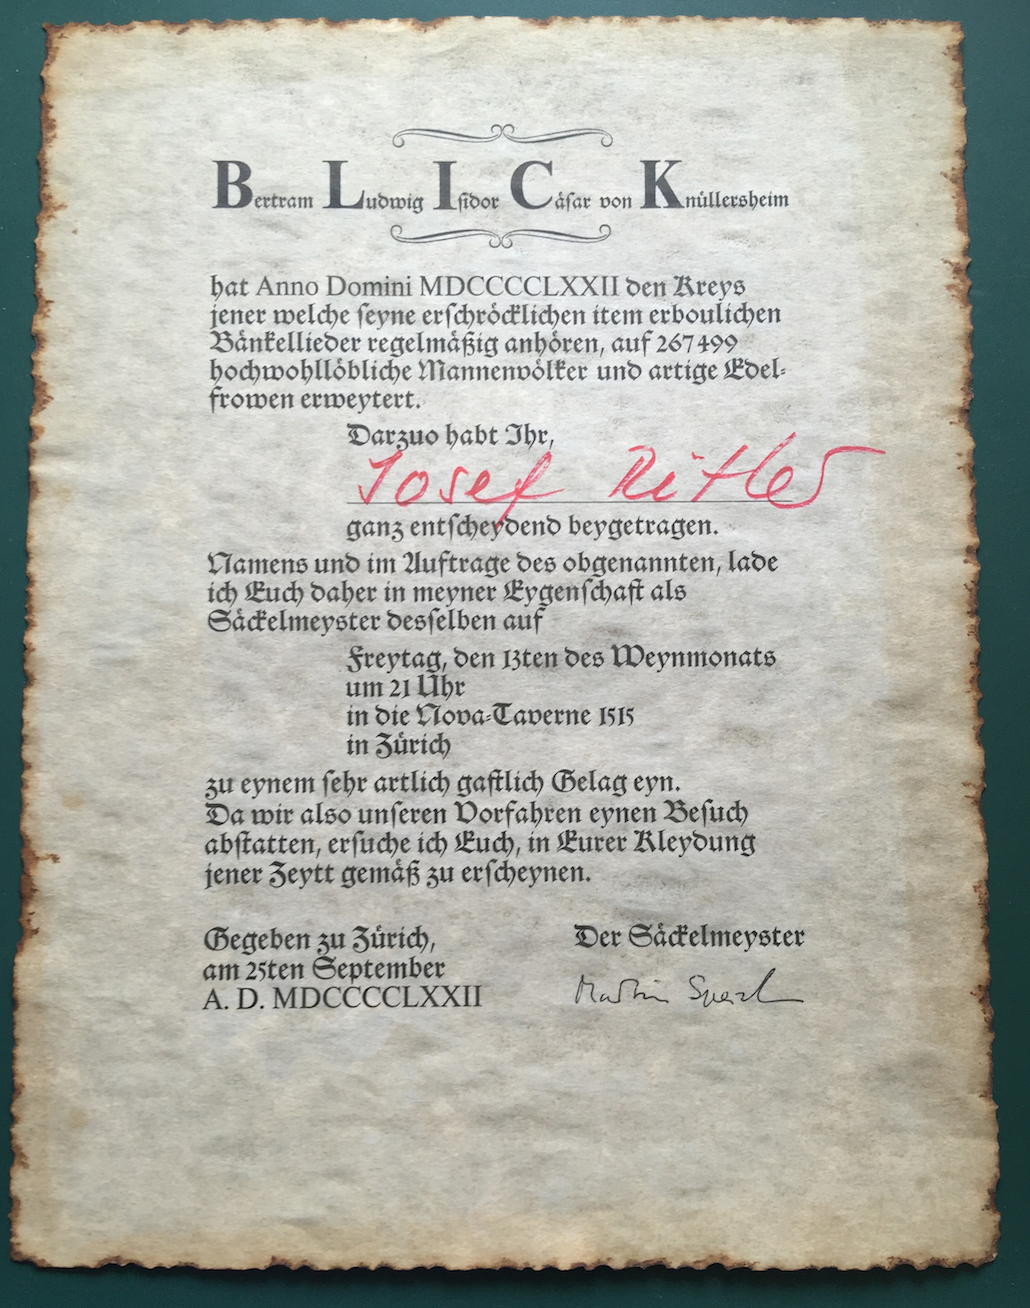 Bertram Ludwig Isidor Cäsar von Knüllersheim
hat Anno Domini MDCCCCCLXXII den Kreys
jener welche seyne erschröcklichen item erboulichen
Bänkellieder regelmäßig anhören, auf 267499
hochwohllöbliche Mannenvölker und artige Edel-
frowen erweytert.
Darzuo habt Ihr,
Josef Ritler
ganz entscheydend beygetragen.
Namens und im Auftrage des obgenannten, lade
ich Euch daher in meyner Eygenschaft als
Säckelmeyster desselben auf
Freytag, den 13ten des Weynmonats
um 21 Uhr
in die Nova-Taverne 1515
in Zürich
zu eynem sehr artlich gastlich Gelag eyn.
Da wir also unseren Vorfahren eynen Besuch
abstatten, ersuche ich Euch, in Eurer Kleydung
jener Zeytt gemäß zu erscheynen.
Gegeben zu Zürich,
am 25ten September
A. D. MDCCCCCLXXII
Der Säckelmeyster
Martin